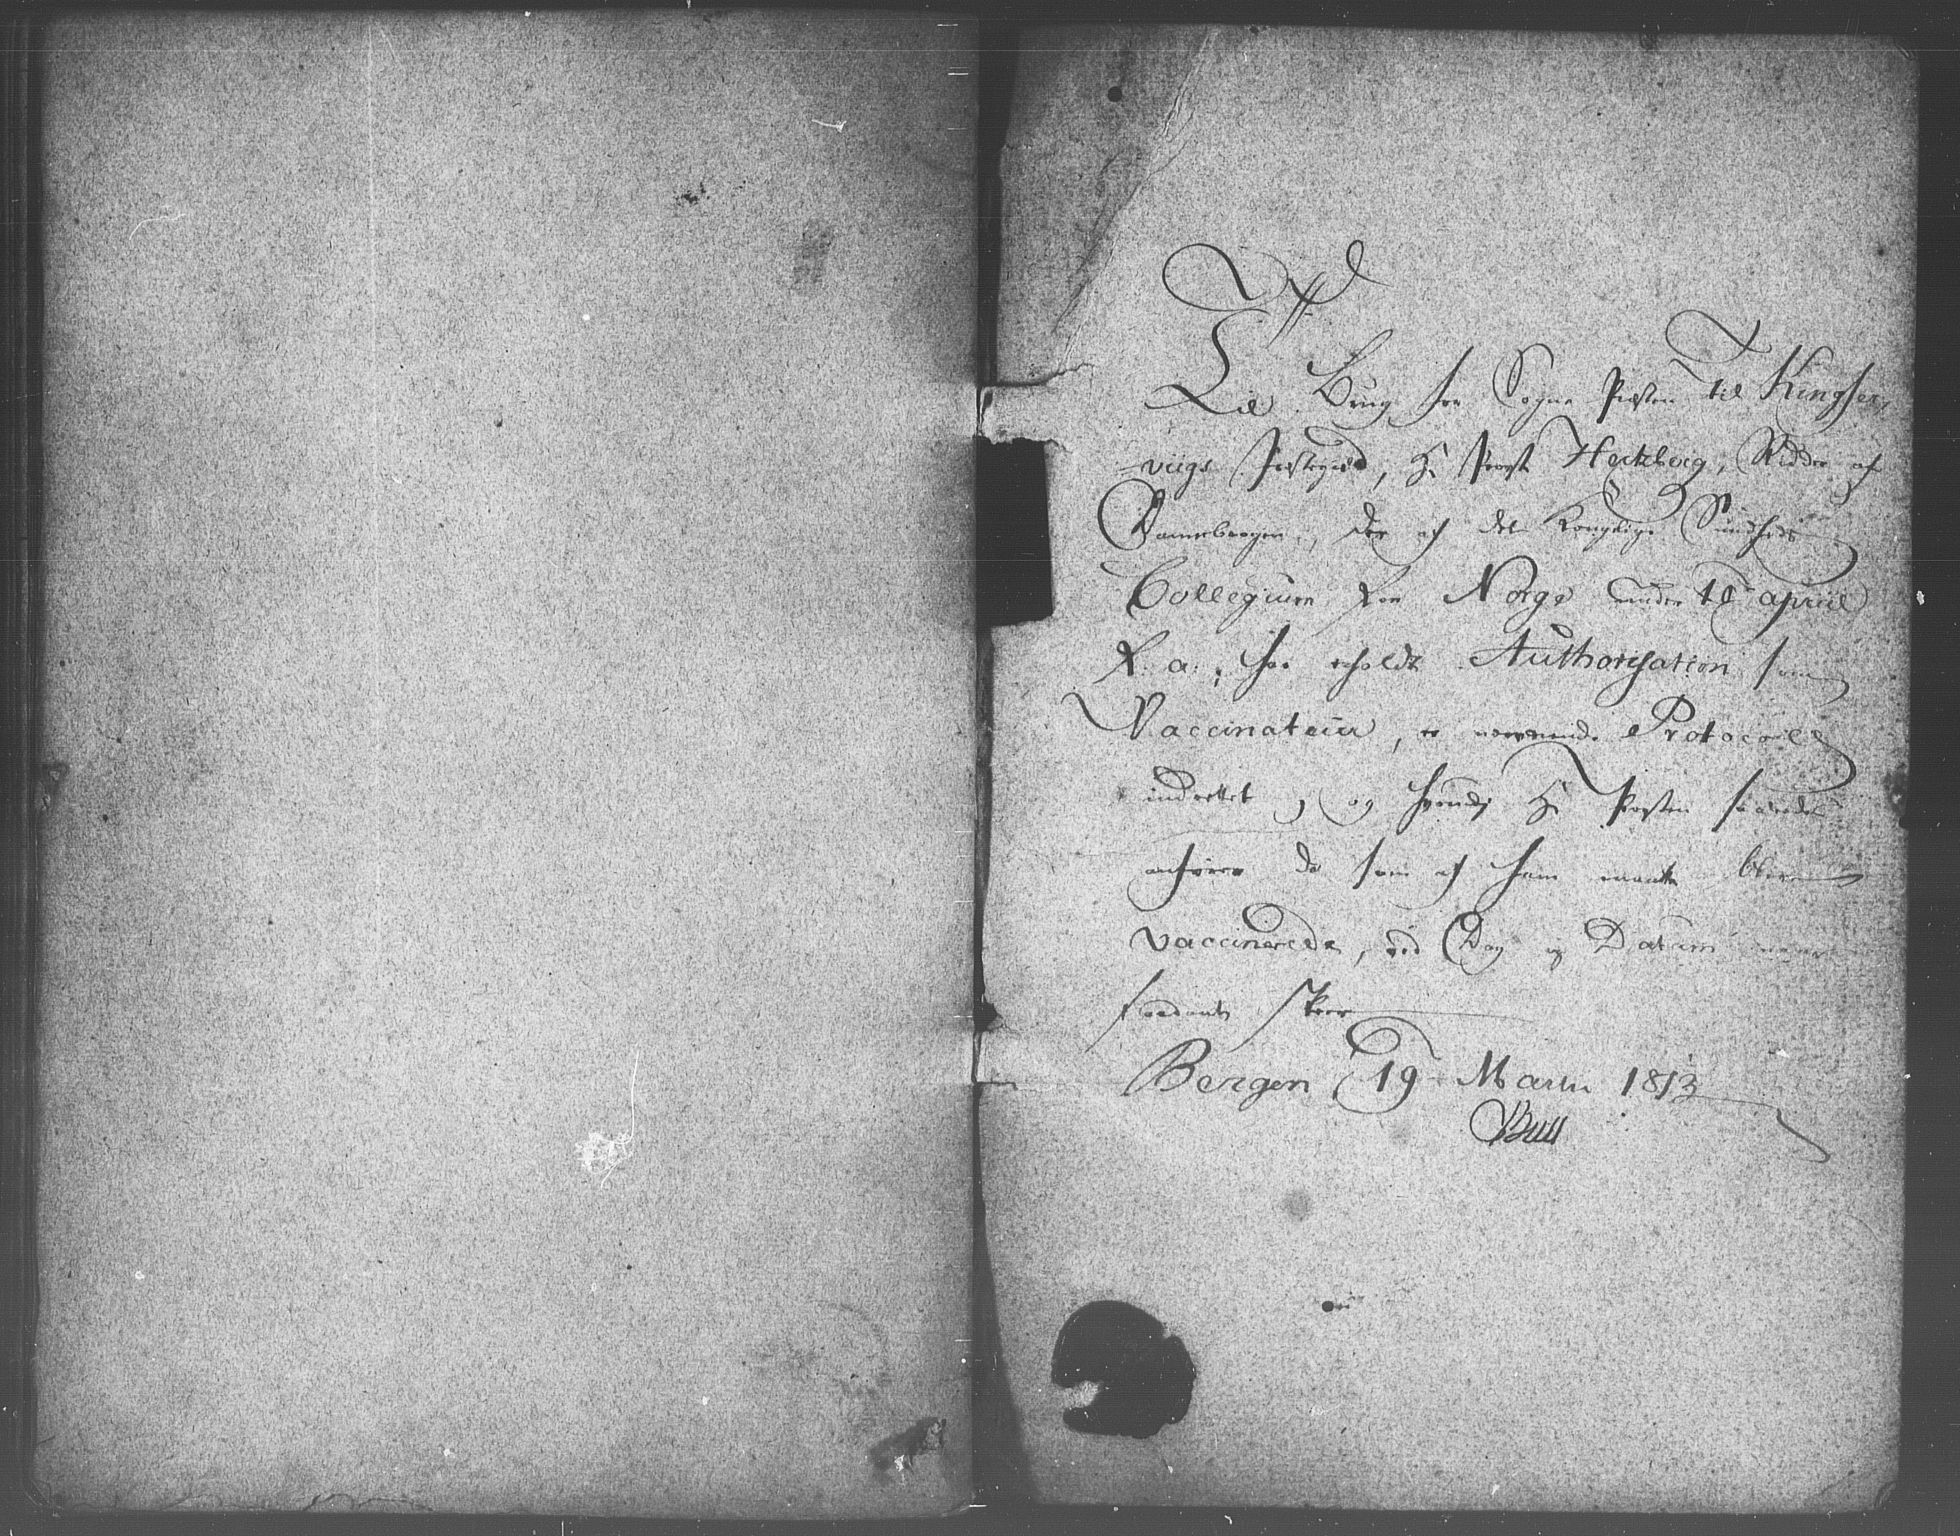 Til Brug for Sogne Præsten til Kingser,
-viigs Præstegield, Hr Provst Hertzberg, Ridder af
Dannebrogen, der af det Kongelige Sundheds
Collegium for Norge under 18 april
f. a. har erholdt Authorisation som
Vaccinateur, er nærværende Protocoll
indrettet, og hvorudi Hr Provsten
anfører de som af ham maatte blive
vaccinerede, ved Dag og Datum naar
saadant skeer
Bergen 19 Martii 1813
Bull